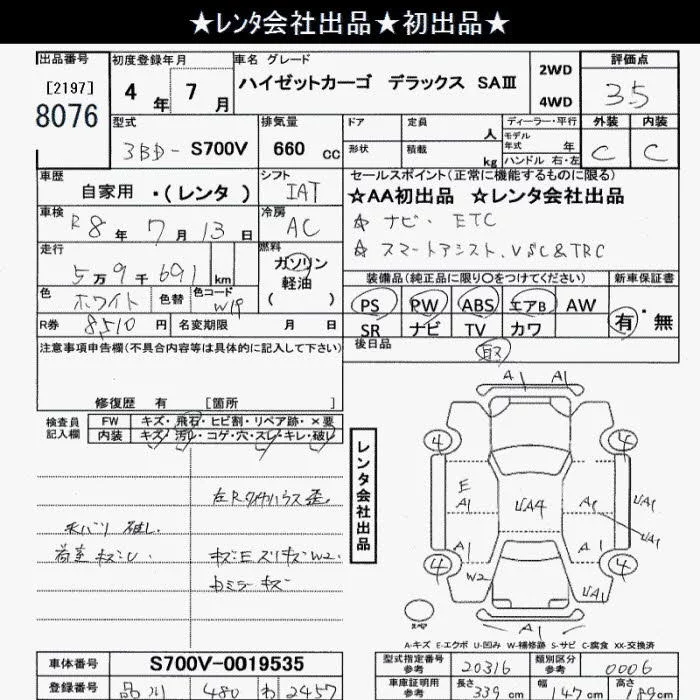 ★レンタ会社出品★初出品★
出品番号 初度登録年月 車名 グレード 2WD 評価点
[2197] 4年 7月 ハイゼットカーゴ デラックス SAⅢ 4WD 3.5
8076
型式 排気量 ドア 定員 人 ディーラー・平行 外装 内装
3BD- S700V 660 cc 形状 積載 kg モデル年式 年 C C
ハンドル 右・左
車歴 シフト セールスポイント(正常に機能するものに限る)
自家用 ・(レンタ) IAT ☆AA初出品 ☆レンタ会社出品
車検 冷房 ☆ ナビ・ETC
R8年 7月 13日 AC ☆ スマートアシスト、VSC&TRC
走行 燃料
5万9千691 km ガソリン 装備品(純正品に限り〇をつけてください) 新車保証書
軽油
( )
色 ホワイト 色替 色コード W19 PS PW ABS エアB AW 有・無
R券 8,510円 名変期限 月 日 SR ナビ TV カワ
注意事項申告欄(不具合内容等は具体的に記入して下さい) 後日品
取
修復歴 有 [箇所
検査員記入欄 FW キズ・飛石・ヒビ割・リペア跡・×要
内装 キズ・汚レ・コゲ・穴・スレ・キレ・破レ
レンタ会社出品
左Rタイヤハウス歪。
荷室 キズU. キズEズリキズW2.
ミラーキズ
A1 A1
④ ④
E
A1 UA4 A1 UA1
A1 A1 UA1
④ ④
W2 UA1
A1
スペア
A-キズ E-エクボ U-凹み W-補修跡 S-サビ C-腐食 XX-交換済
車体番号 S700V-0019535 型式指定番号 参考 20316 類別区分 参考 0006
登録番号 品川 480 わ 2457 車庫証明用 参考 長さ 339 cm 幅 147 cm 高さ 189 cm